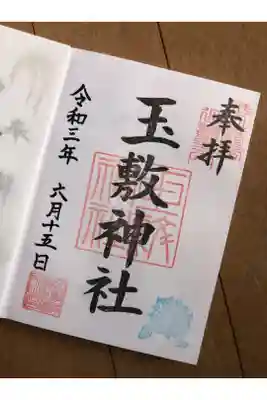 奉拝
玉敷神社
令和三年 六月十五日